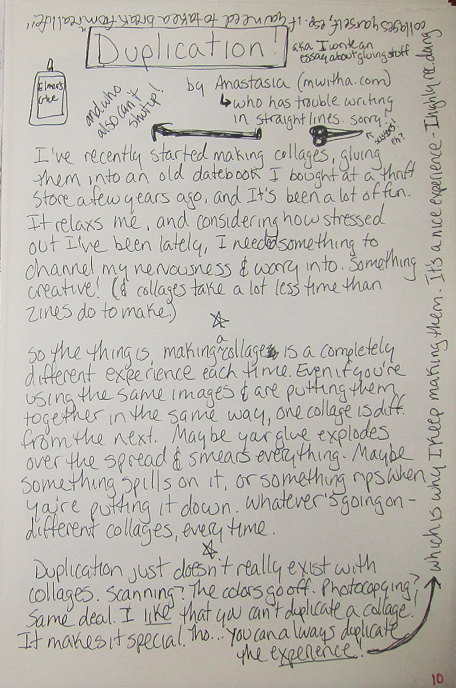 Duplication!
aka I write an
essay about gluing stuff
Elmer's
glue
and who
also can't
shut up!
by Anastasia (mwitha.com)
who has trouble writing
in straight lines. sorry.
I've recently started making collages, gluing
them into an old datebook I bought at a thrift
store a few years ago, and it's been a lot of fun.
It relaxs me, and considering how stressed
out I've been lately, I need something to
channel my nervousness & worry into. Something
creative! (& collages take a lot less time than
zines do to make.)
So the thing is, making a collage is a completely
different experience each time. Even if you're
using the same images & are putting them
together in the same way, one collage is diff.
from the next. Maybe your glue explodes
over the spread & smears everything. Maybe
something spills on it, or something rips when
you're putting it down. Whatever's going on -
different collages, every time.
Duplication just doesn't really exist with
collages. Scanning? The colors go off. Photocopying?
Same deal. I like that you can't duplicate a collage!
It makes it special. Tho... You can always duplicate
the experience.
which is why I keep making them. It's a nice experience - I highly rec. doing
collages yourself, esp. if you need to take a break from "real life"
10